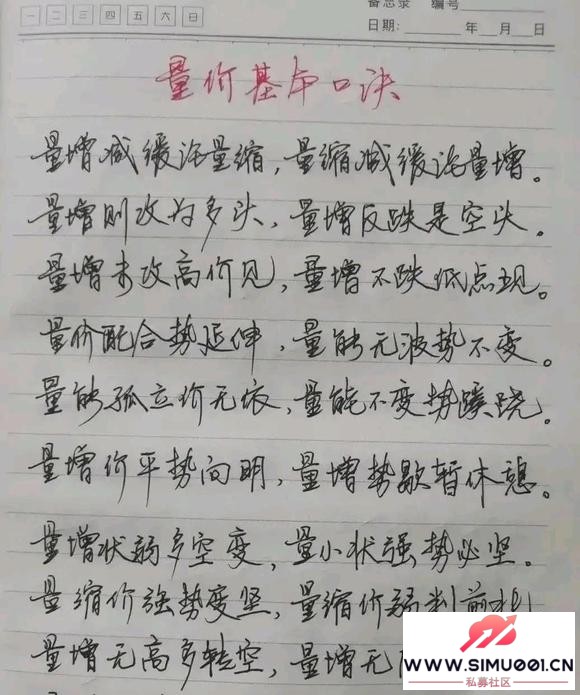 一 二 三 四 五 六 日
备忘录 编号
日期: 年 月 日
量价基本口诀
量增减缓论量缩，量缩减缓论量增。
量增则改为多头，量增反跌是空头。
量增未改高价见，量增不跌低点现。
量价配合势延伸，量能无波势不变。
量能孤立价无依，量能不变势蹊跷。
量增价平势向明，量增势歇暂休憩。
量增状弱多空变，量小状强势必坚。
量缩价强势变坚，量缩价弱判前
量增无高多转空，量增无
WWW.SIMU001.CN
私募社区